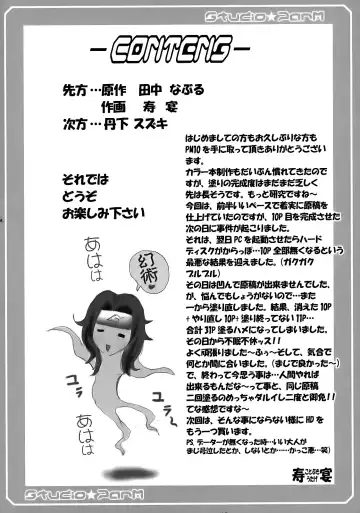 Studio★ParM
-CONTENS-
先方…原作 田中 なぷる
作画 寿 宴
次方…丹下 スズキ
それでは
どうぞ
お楽しみ下さい
はじめましての方もお久しぶりな方も
PM10を手に取って頂きありがとうござい
ます。
カラー本制作もだいぶん慣れてきたので
すが、塗りの完成度はまだまだ乏しく
先は長そうです。もっと研究ですね～
今回は、前半いいペースで着実に原稿を
仕上げていたのですが、10P目を完成させた
次の日に事件が起こりました。
それは、翌日PCを起動させたらハード
ディスクがからっぽ…10P全部無くなるという
最悪な結果を迎えました。(ガクガク
ブルブル)
その日は凹んで原稿が出来ませんでした
が、悩んでもしょうがないので…また
一から塗り直しました。結果、消えた10P
+やり直し10P+塗り終ってない11P…
合計31P塗るハメになってしまいました。
その日から不眠不休ッス!!
よく頑張りました～ふぅ～そして、気合で
何とか間に合いました。(まじで良かった～)
で、終わって今思う事は…人間やれば
出来るもんだな～って事と、同じ原稿
二回塗るのめっちゃダルイし二度と御免!!
てな感想ですな～
次回は、そんな事にならない様にHDを
もう一つ買います。
PS.データーが無くなった時…いい大人が
まじ号泣したとか、しないとか……かっこ悪…笑)
寿 宴
ことぶき うたげ
幻術
あはは
あはは
ユラ～
ユラ～
Studio★ParM